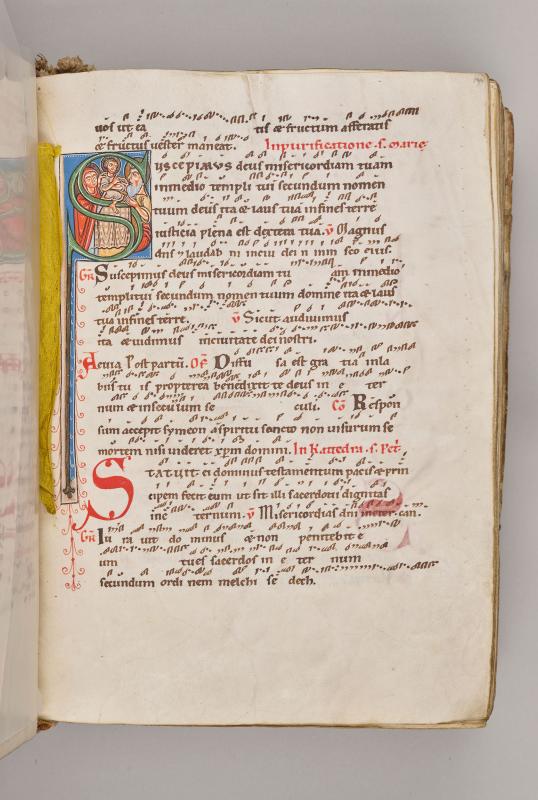 uos ut ea tis & fructum afferatis
& fructus uester maneat. In purificatione .s. marie
SUSCEPIMUS deus misericordiam tuam
in medio templi tui secundum nomen
tuum deus ita & laus tua in fines terre
iusticia plena est dextera tua. v Magnus
dns & laudab in ciui dei n in m sco eius.
GR Suscepimus deus misericordiam tu am in medio
templi tui secundum nomen tuum domine ita & laus
tua in fines terre. v Sicut audiuimus
ita & uidimus in ciuitate dei nostri.
Alleluia Post partū. Of Diffu sa est gra tia in la
biis tu is propterea benedixit te deus in e ter
num & in seculum se culi. Co Respon
sum accepit symeon a spiritu sancto non uisurum se
mortem nisi uideret xpm domini. In Kathedra .s. Pet
STATUIT ei dominus testamentum pacis & prin
cipem fecit eum ut sit illi sacerdotii dignitas
in & ternum. v Misericordias dni in et can.
GR Iu ra uit do minus & non penitebit e
um tu es sacerdos in e ter num
secundum ordi nem melchi se dech.